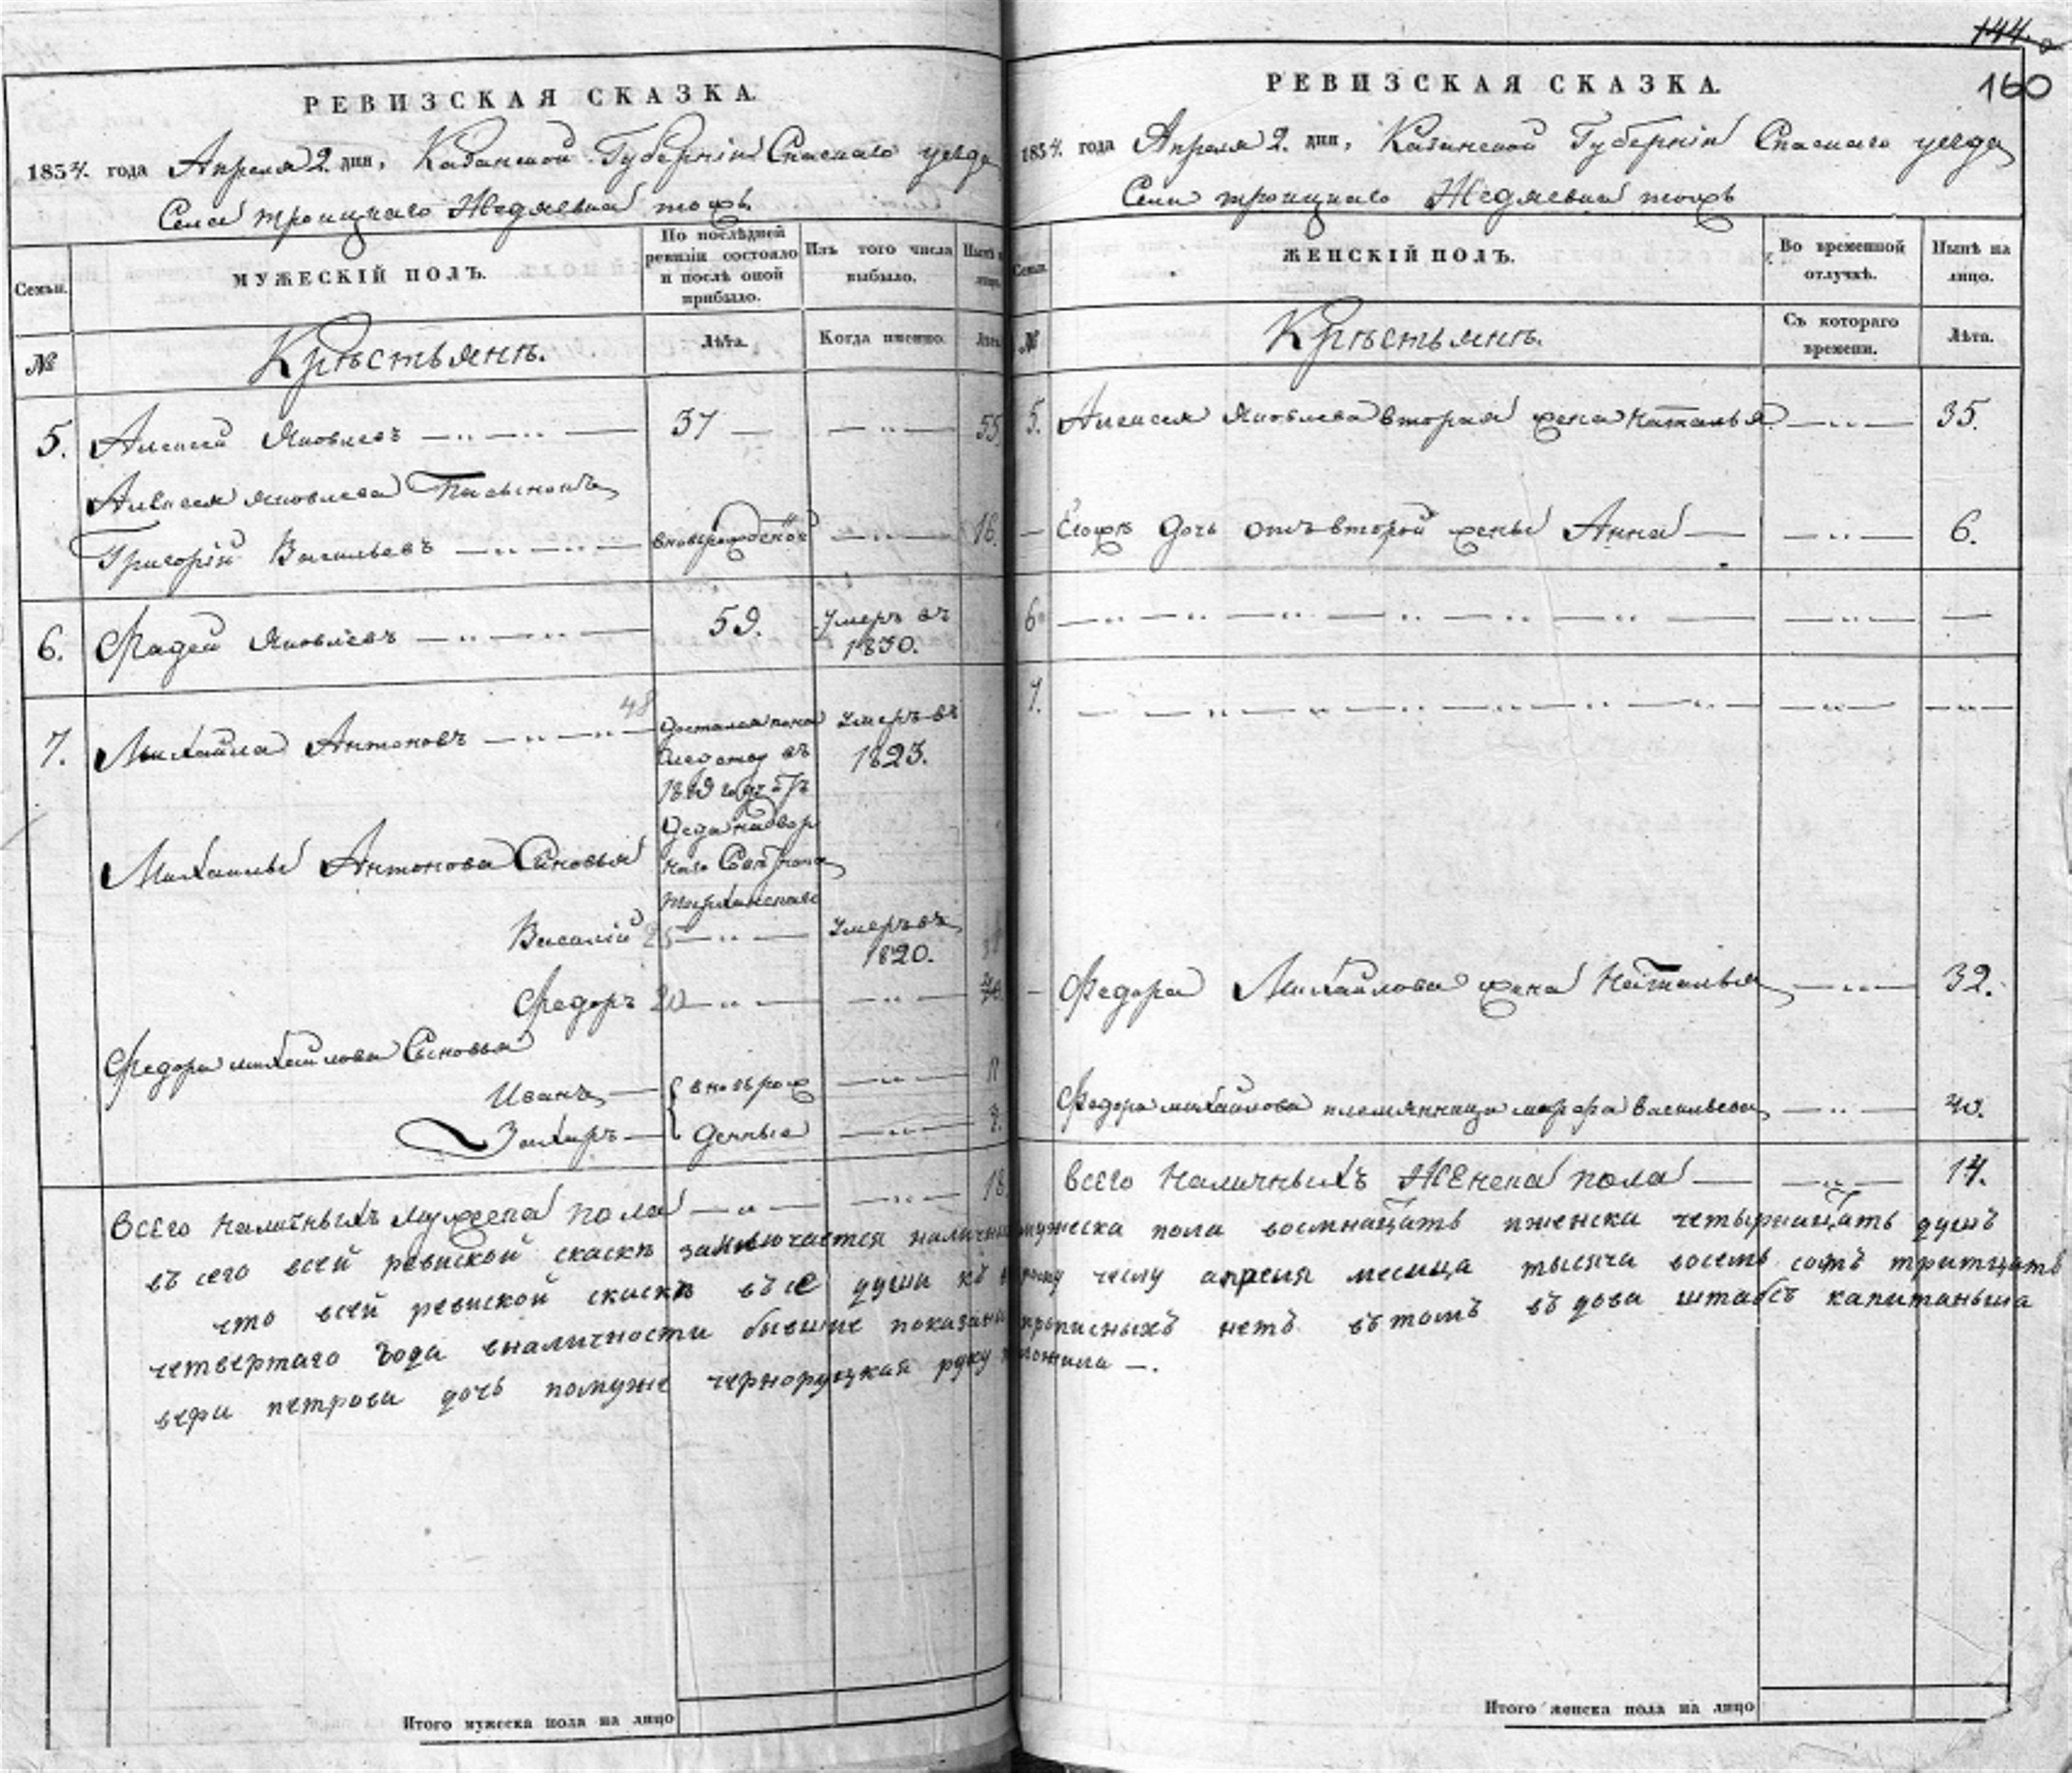 РЕВИЗСКАЯ СКАЗКА.
1834. года Апреля 2. дня, Казанской Губернии Спаскаго уезда
Села троицкаго Жедяевка тожъ
Семьи.
МУЖЕСКІЙ ПОЛЪ.
По послѣдней ревизіи состояло и послѣ оной прибыло.
Изъ того числа выбыло.
Нынѣ
№
Крѣстьянѣ.
Лѣта.
Когда именно.
Лѣта.
5. Алексей Яковлевъ — 〃 — 〃 — 37 — — 〃 — 55
Алексея Яковлева Пасынокъ
Григорій Васильевъ — 〃 — 〃 — вновьрожденой — 〃 — 16.
6. Фадей Яковлевъ — 〃 — 〃 — 59. Умеръ въ
1830.
7. Михайла Антоновъ — 〃 — 〃 — 48 Умеръ въ
1823.
Михаилы Антонова Сыновья
Василий 25 — 〃 — Умеръ въ
1820.
Федоръ 20 — 〃 — — 〃 —
Федора михайлова Сыновья
Иванъ — вновь рож — 〃 — 11
Захаръ — денные — 〃 —
Всего наличныхъ мужеска пола — 〃 — — 〃 — 18.
Итого мужеска пола на лицо
144.
160
РЕВИЗСКАЯ СКАЗКА.
1834. года Апреля 2. дня, Казанской Губерніи Спаскаго уезда
Села троицкаго Жедяевка тожъ
Семьи.
ЖЕНСКІЙ ПОЛЪ.
Во временной отлучкѣ.
Нынѣ на лицо.
№
Крѣстьянѣ.
Съ котораго времени.
Лѣта.
5. Алексея Яковлева вторая жена Наталья — 〃 — 35.
— Егожъ дочь отъ второй жены Анна — — 〃 — 6.
6
7.
— Федора Михайлова жена Наталья — 〃 — 32.
Федора михайлова племянница марфа васильева — 〃 — 40.
Всего Наличныхъ Женска пола — — 〃 — 14.
въ сего всей ревиской скаскѣ заключается наличных мужеска пола восмнатцать иженска четырнатцать душъ
что всей ревиской скаскѣ въсе души къ числу апреля месеца тысяча восемь сотъ тритцать
четвертаго года вналичности бывшие показаны прописныхъ нетъ вътомъ въдова штабсъ капитаньша
вера петрова дочь помуже чернорутцкая руку приложила —.
Итого женска пола на лицо